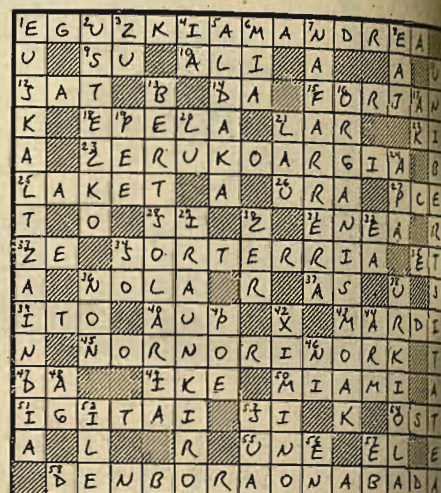 E G U Z K I A M A N D R E A
U S U A L I A A
S A T B D A E O R T A N
K E P E L A L A R K I
A Z E R U K O A R G I A
L A K E T A O R A P C E
T O S I Z E N E A R
Z E S O R T E R R I A E T
A N O L A R A S U
I T O A U P X M A R D I
N N O R N O R I N O R K T
D A I K E M I A M I A
I G I T A I S I K O S T
A L R U N E E L E
D E N B O R A O N A B A D